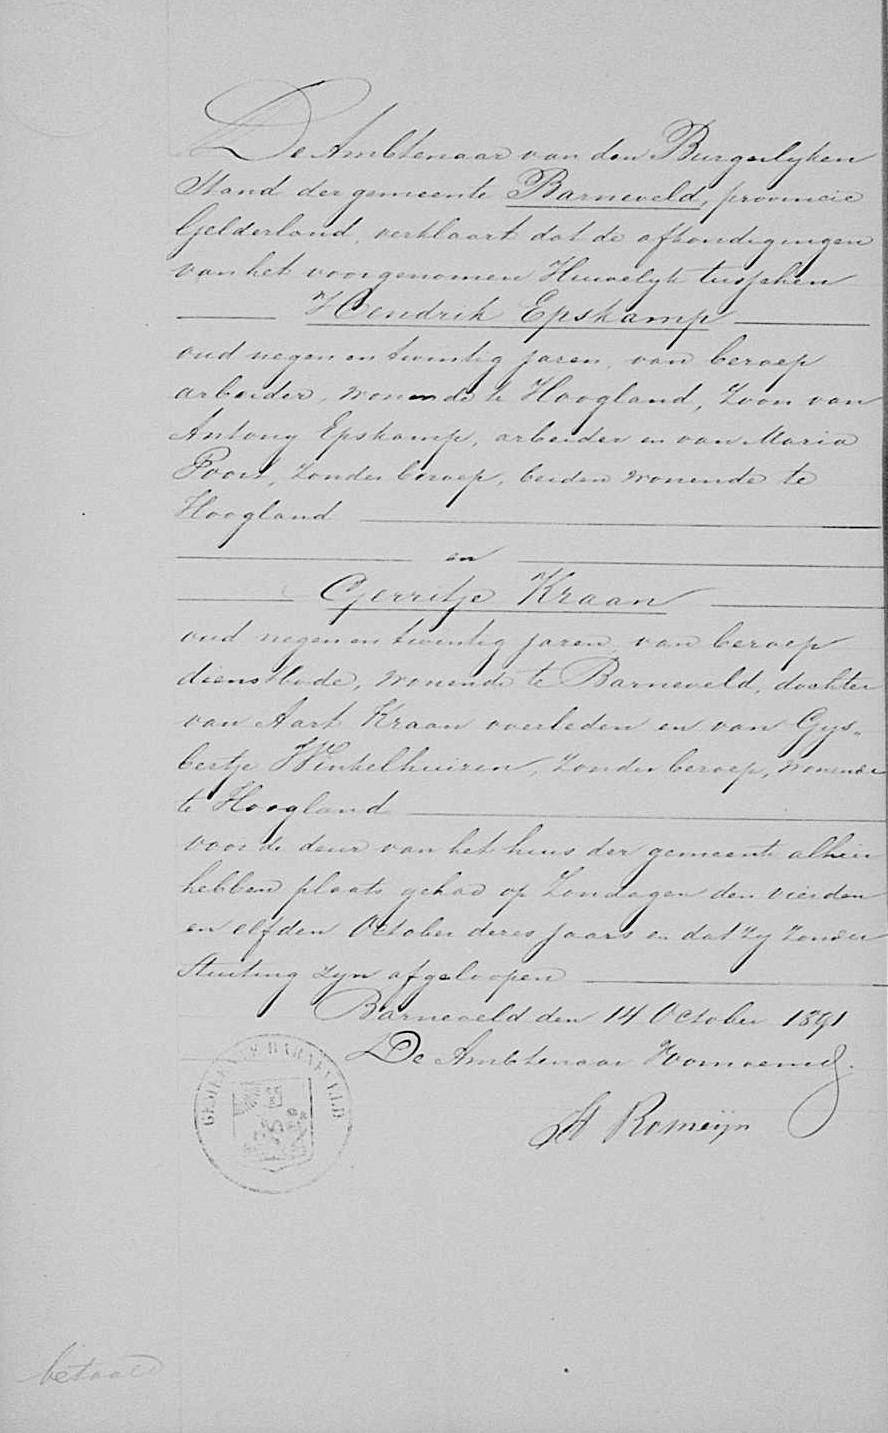 De Ambtenaar van den Burgerlyken
Stand der gemeente Barneveld, provincie
Gelderland, verklaart dat de afkondigingen
van het voorgenomen Huwelyk tusschen
Hendrik Epskamp
oud negen en twintig jaren, van beroep
arbeider, wonende te Hoogland, Zoon van
Antony Epskamp, arbeider en van Maria
zonder beroep, beiden wonende te
Hoogland
en
Gerritje Kraan
oud negen en twintig jaren, van beroep
dienstbode, wonende te Barneveld, dochter
van Aart Kraan overleden en van Gys-
bertje Winkelhuizen, zonder beroep, wonende
te Hoogland
voor de deur van het huis der gemeente alhier
hebben plaats gehad op Zondagen den vierden
en elfden October dezes jaars en dat zy zonder
stuiting zyn afgeloopen
Barneveld den 14 October 1891
De Ambtenaar voornoemd.
Romeijn
GEMEENTE BARNEVELD
betaald